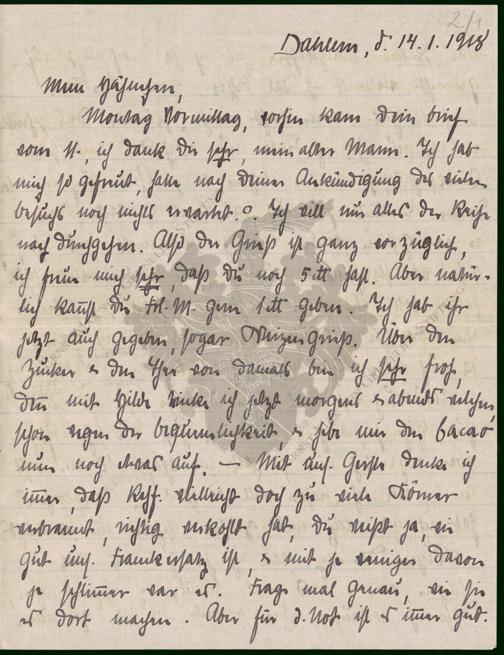 2/1
Dahlem, d. 14.1.1918
Mein Hähnchen,
Montag Vormittag, vorhin kam dein brief
vom 11., ich dank dir sehr, mein alter Mann. Ich hab
mich so gefreut, hatte nach deiner Ankündigung des vielen
besuchs noch nichts erwartet. Ich will nun alles der Reihe
nach durchgehen. Also der Grieß ist ganz vorzüglich,
ich freu mich sehr, daß du noch 5 ℔ hast. Aber natür-
lich kannst du Frl. M. gern 1 ℔ geben. Ich hab ihr
jetzt auch gegeben, sogar Weizengrieß. Über den
Zucker & den Thee von damals bin ich sehr froh,
denn mit Hilde trinke ich jetzt morgens & abends welchen,
schon wegen der bequemlichkeit, & hebe mir den Cacao
nun noch etwas auf. — Mit uns. Gerste denke ich
immer, daß vielleicht doch zu viele Körner
verbrannt, richtig verkohlt hat, du weißt ja, wie
gut uns. ist, & mit je weniger davon
je schlimmer war es. Frage mal genau, wie sie
es dort machen. Aber für d. Not ist es immer gut.